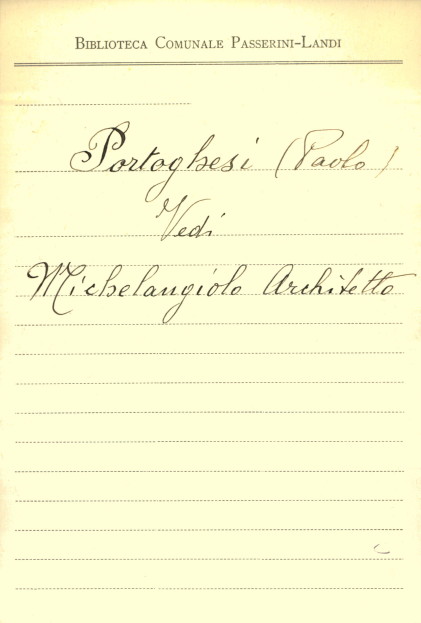 Biblioteca Comunale Passerini-Landi
Portoghesi (Paolo)
Vedi
Michelangiolo Architetto